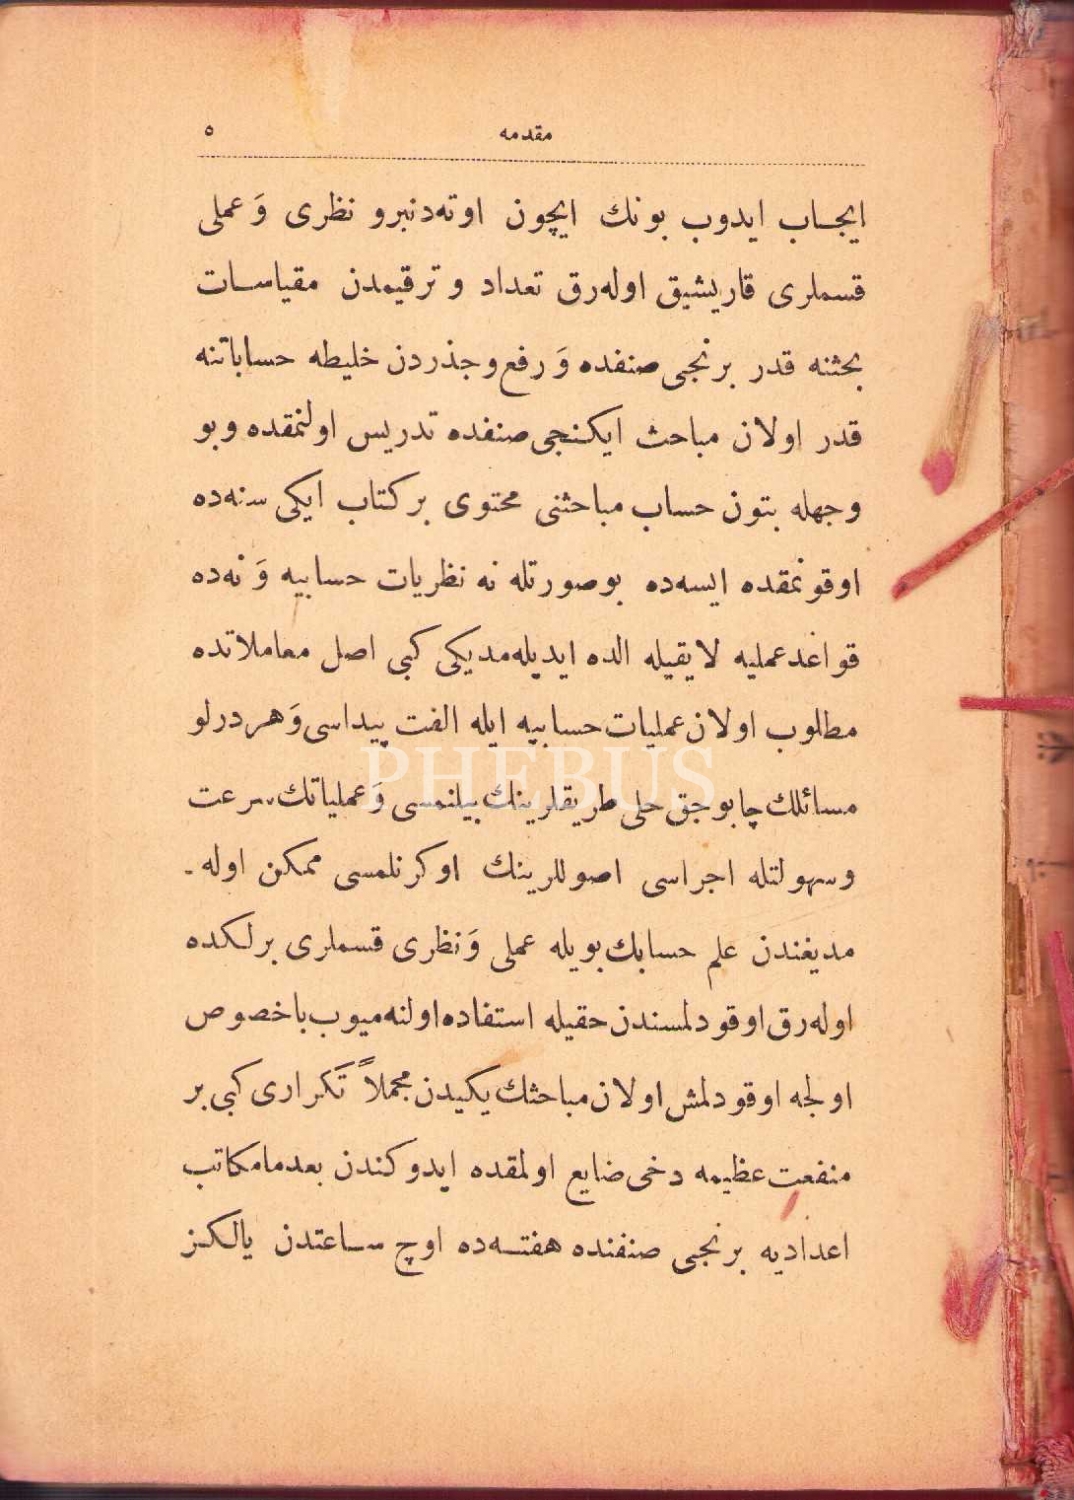 مقدمه ٥
ایجاب ایدوب بونك ایچون اوتەدنبرو نظری وَ عملی
قسملری قاریشیق اولەرق تعداد و ترقیمدن مقیاسات
بحثنه قدر برنجی صنفده وَ رفع و جذردن خلیطه حساباتنه
قدر اولان مباحث ایکنجی صنفده تدریس اولنمقده وبو
وجهله بتون حساب مباحثنی محتوی بر کتاب ایکی سنەده
اوقونمقده ایسەده بوصورتله نه نظریات حسابیه وَ نەده
قواعد عملیه لایقیله الده ایدیلەمدیکی کبی اصل معاملاتده
مطلوب اولان عملیات حسابیه ایله الفت پیداسی وَ هر درلو
مسائلك چابوجق حلی طریقلرینك بیلنمسی وَ عملیاتك سرعت
وسهولتله اجراسی اصوللرینك اوکرنلمسی ممکن اوله -
مدیغندن علم حسابك بویله عملی وَ نظری قسملری برلکده
اولەرق اوقودلمسندن حقیله استفاده اولنەمیوب باخصوص
اولجه اوقودلمش اولان مباحثك یکیدن مجملاً تَکراری کبی بر
منفعت عظیمه دخی ضایع اولمقده ایدوکندن بعدما مکاتب
اعدادیه برنجی صنفنده هفتەده اوچ ساعتدن یالکز
PHEBUS